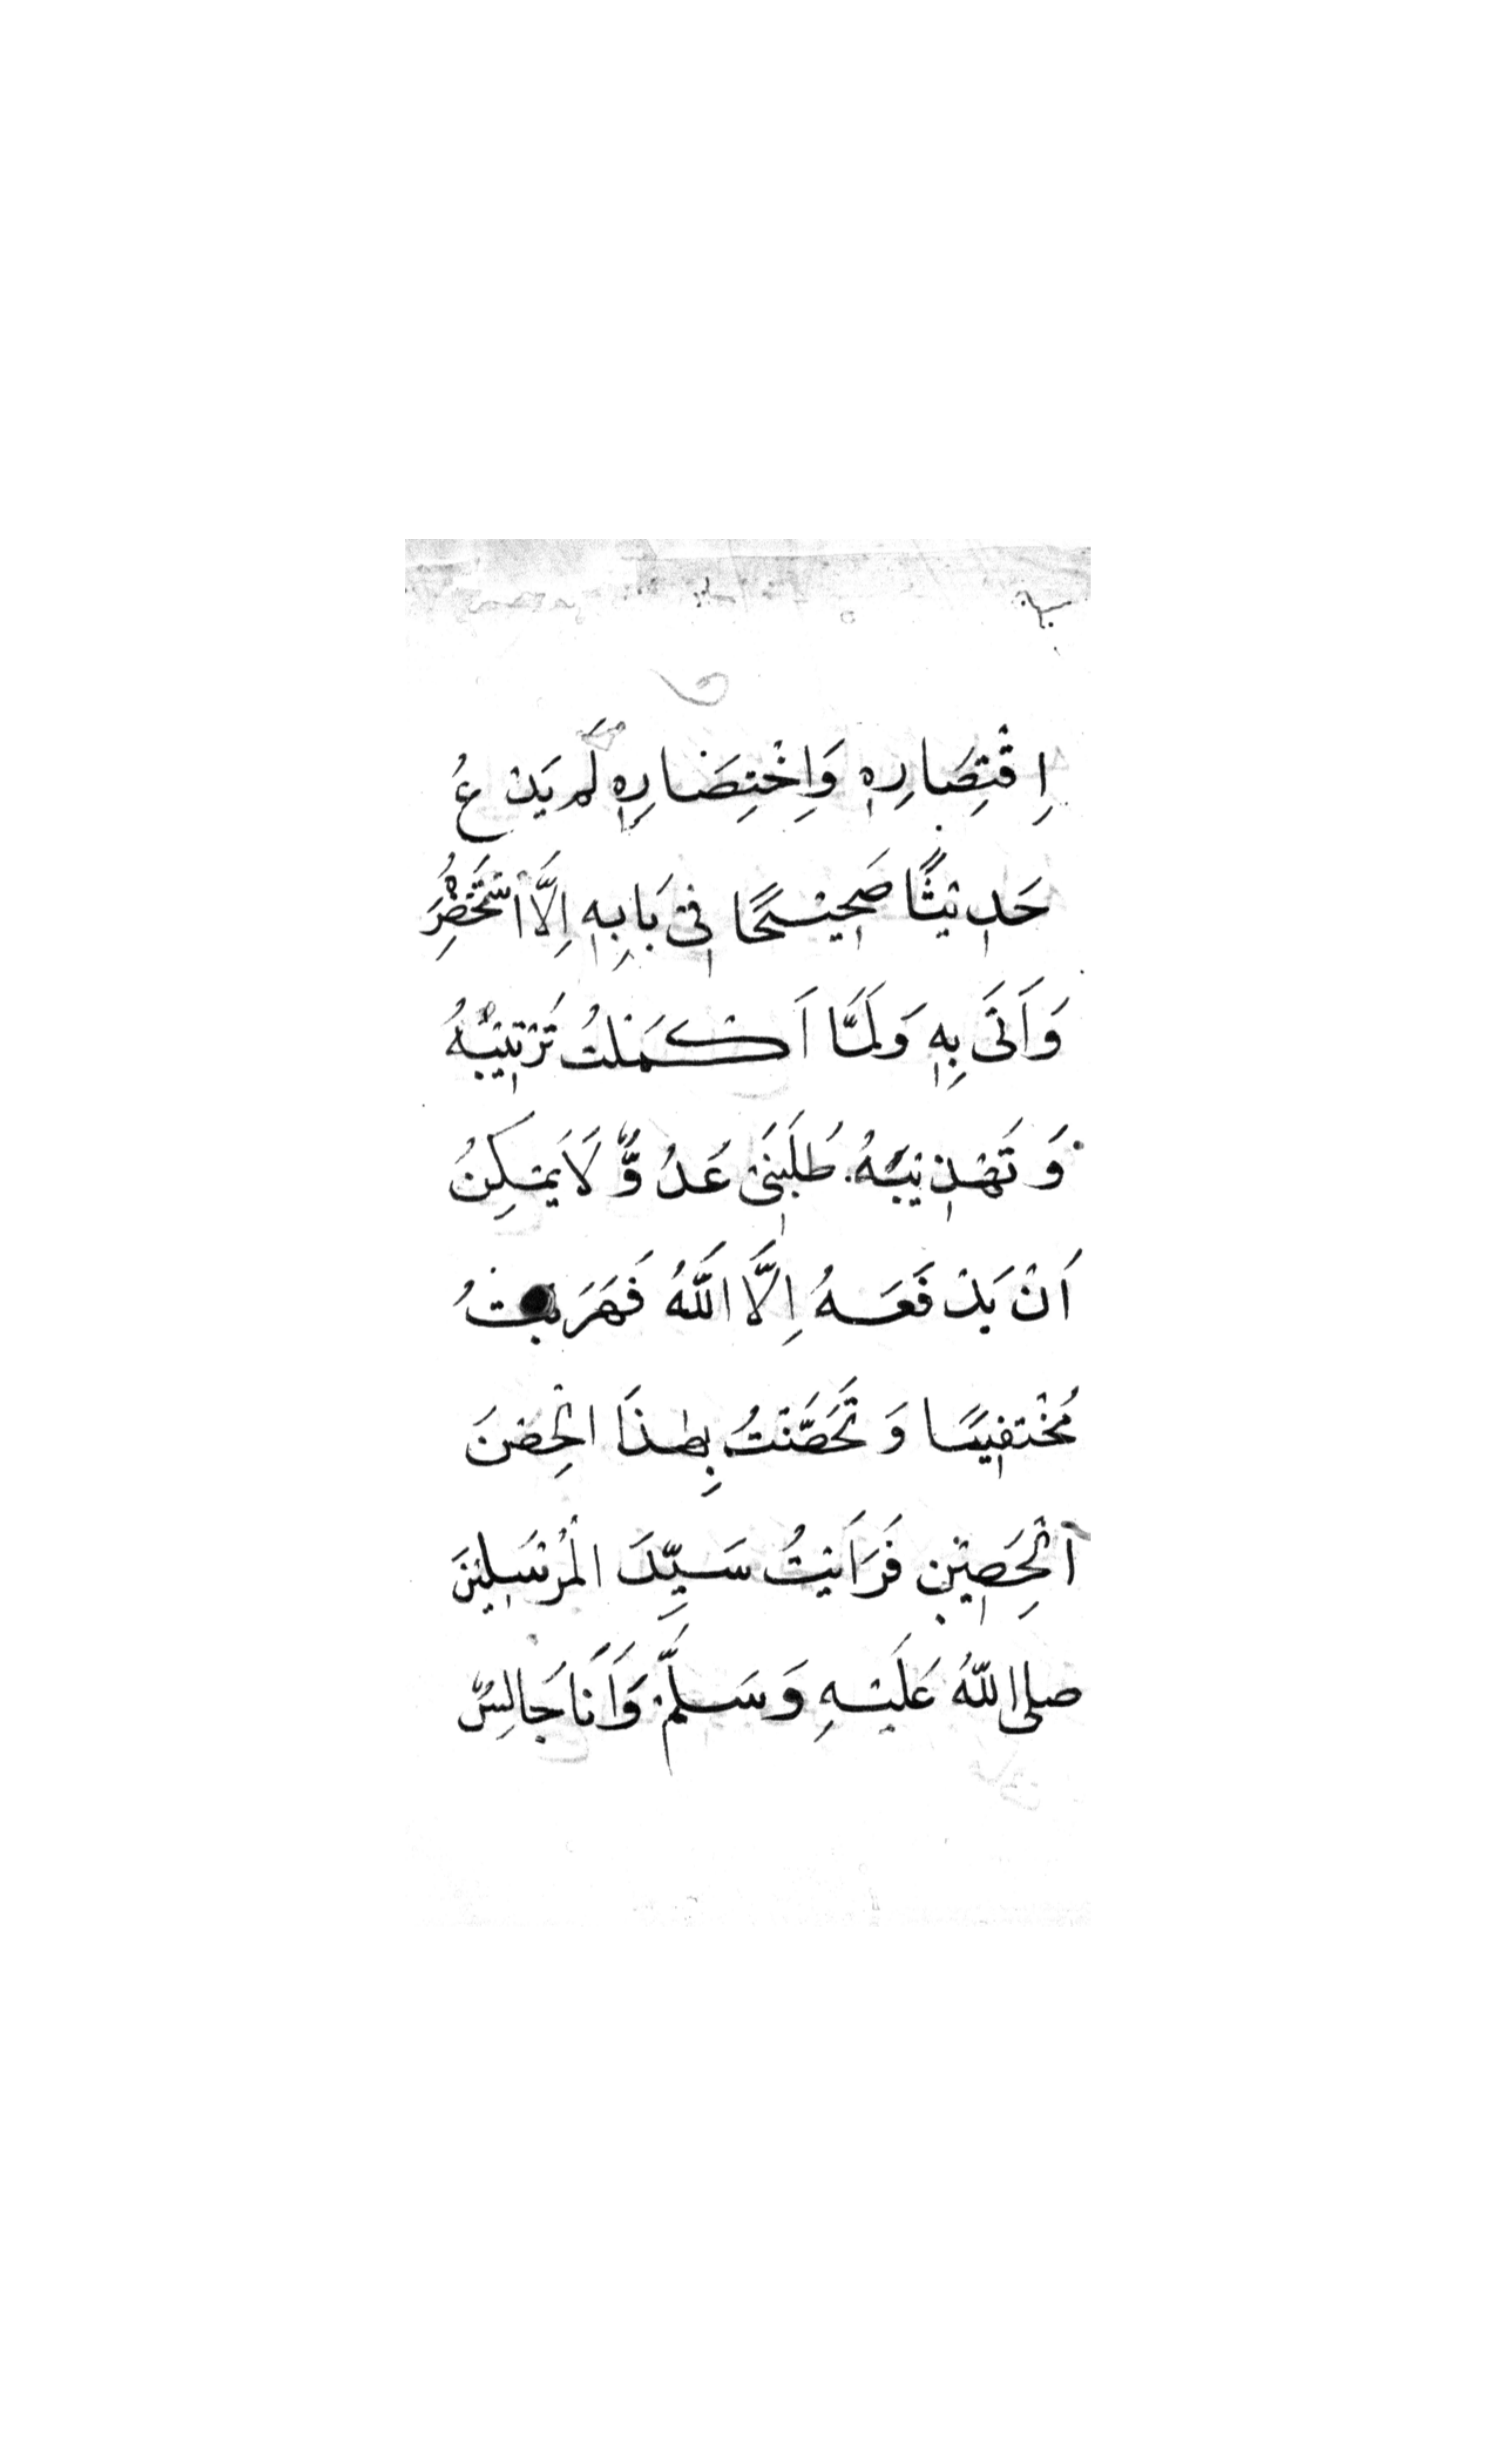 اِقْتِصَارِهٖ وَاِخْتِصَارِهٖ لَمْ يَدَعْ
حَدِيْثًا صَحِيْحًا فِيْ بَابِهٖ اِلَّا اسْتَحْضَرَهُ
وَاَتٰى بِهٖ وَلَمَّا اَكْمَلْتُ تَرْتِيْبَهُ
وَتَهْذِيْبَهُ طَلَبَنِيْ عَدُوٌّ لَا يُمْكِنُ
اَنْ يَدْفَعَهُ اِلَّا اللّٰهُ فَهَرَبْتُ
مُخْتَفِيًا وَ تَحَصَّنْتُ بِهٰذَا الْحِصْنِ
الْحَصِيْنِ فَرَاَيْتُ سَيِّدَ الْمُرْسَلِيْنَ
صلى اللّٰهُ عَلَيْهِ وَسَلَّمَ وَاَنَا جَالِسٌ